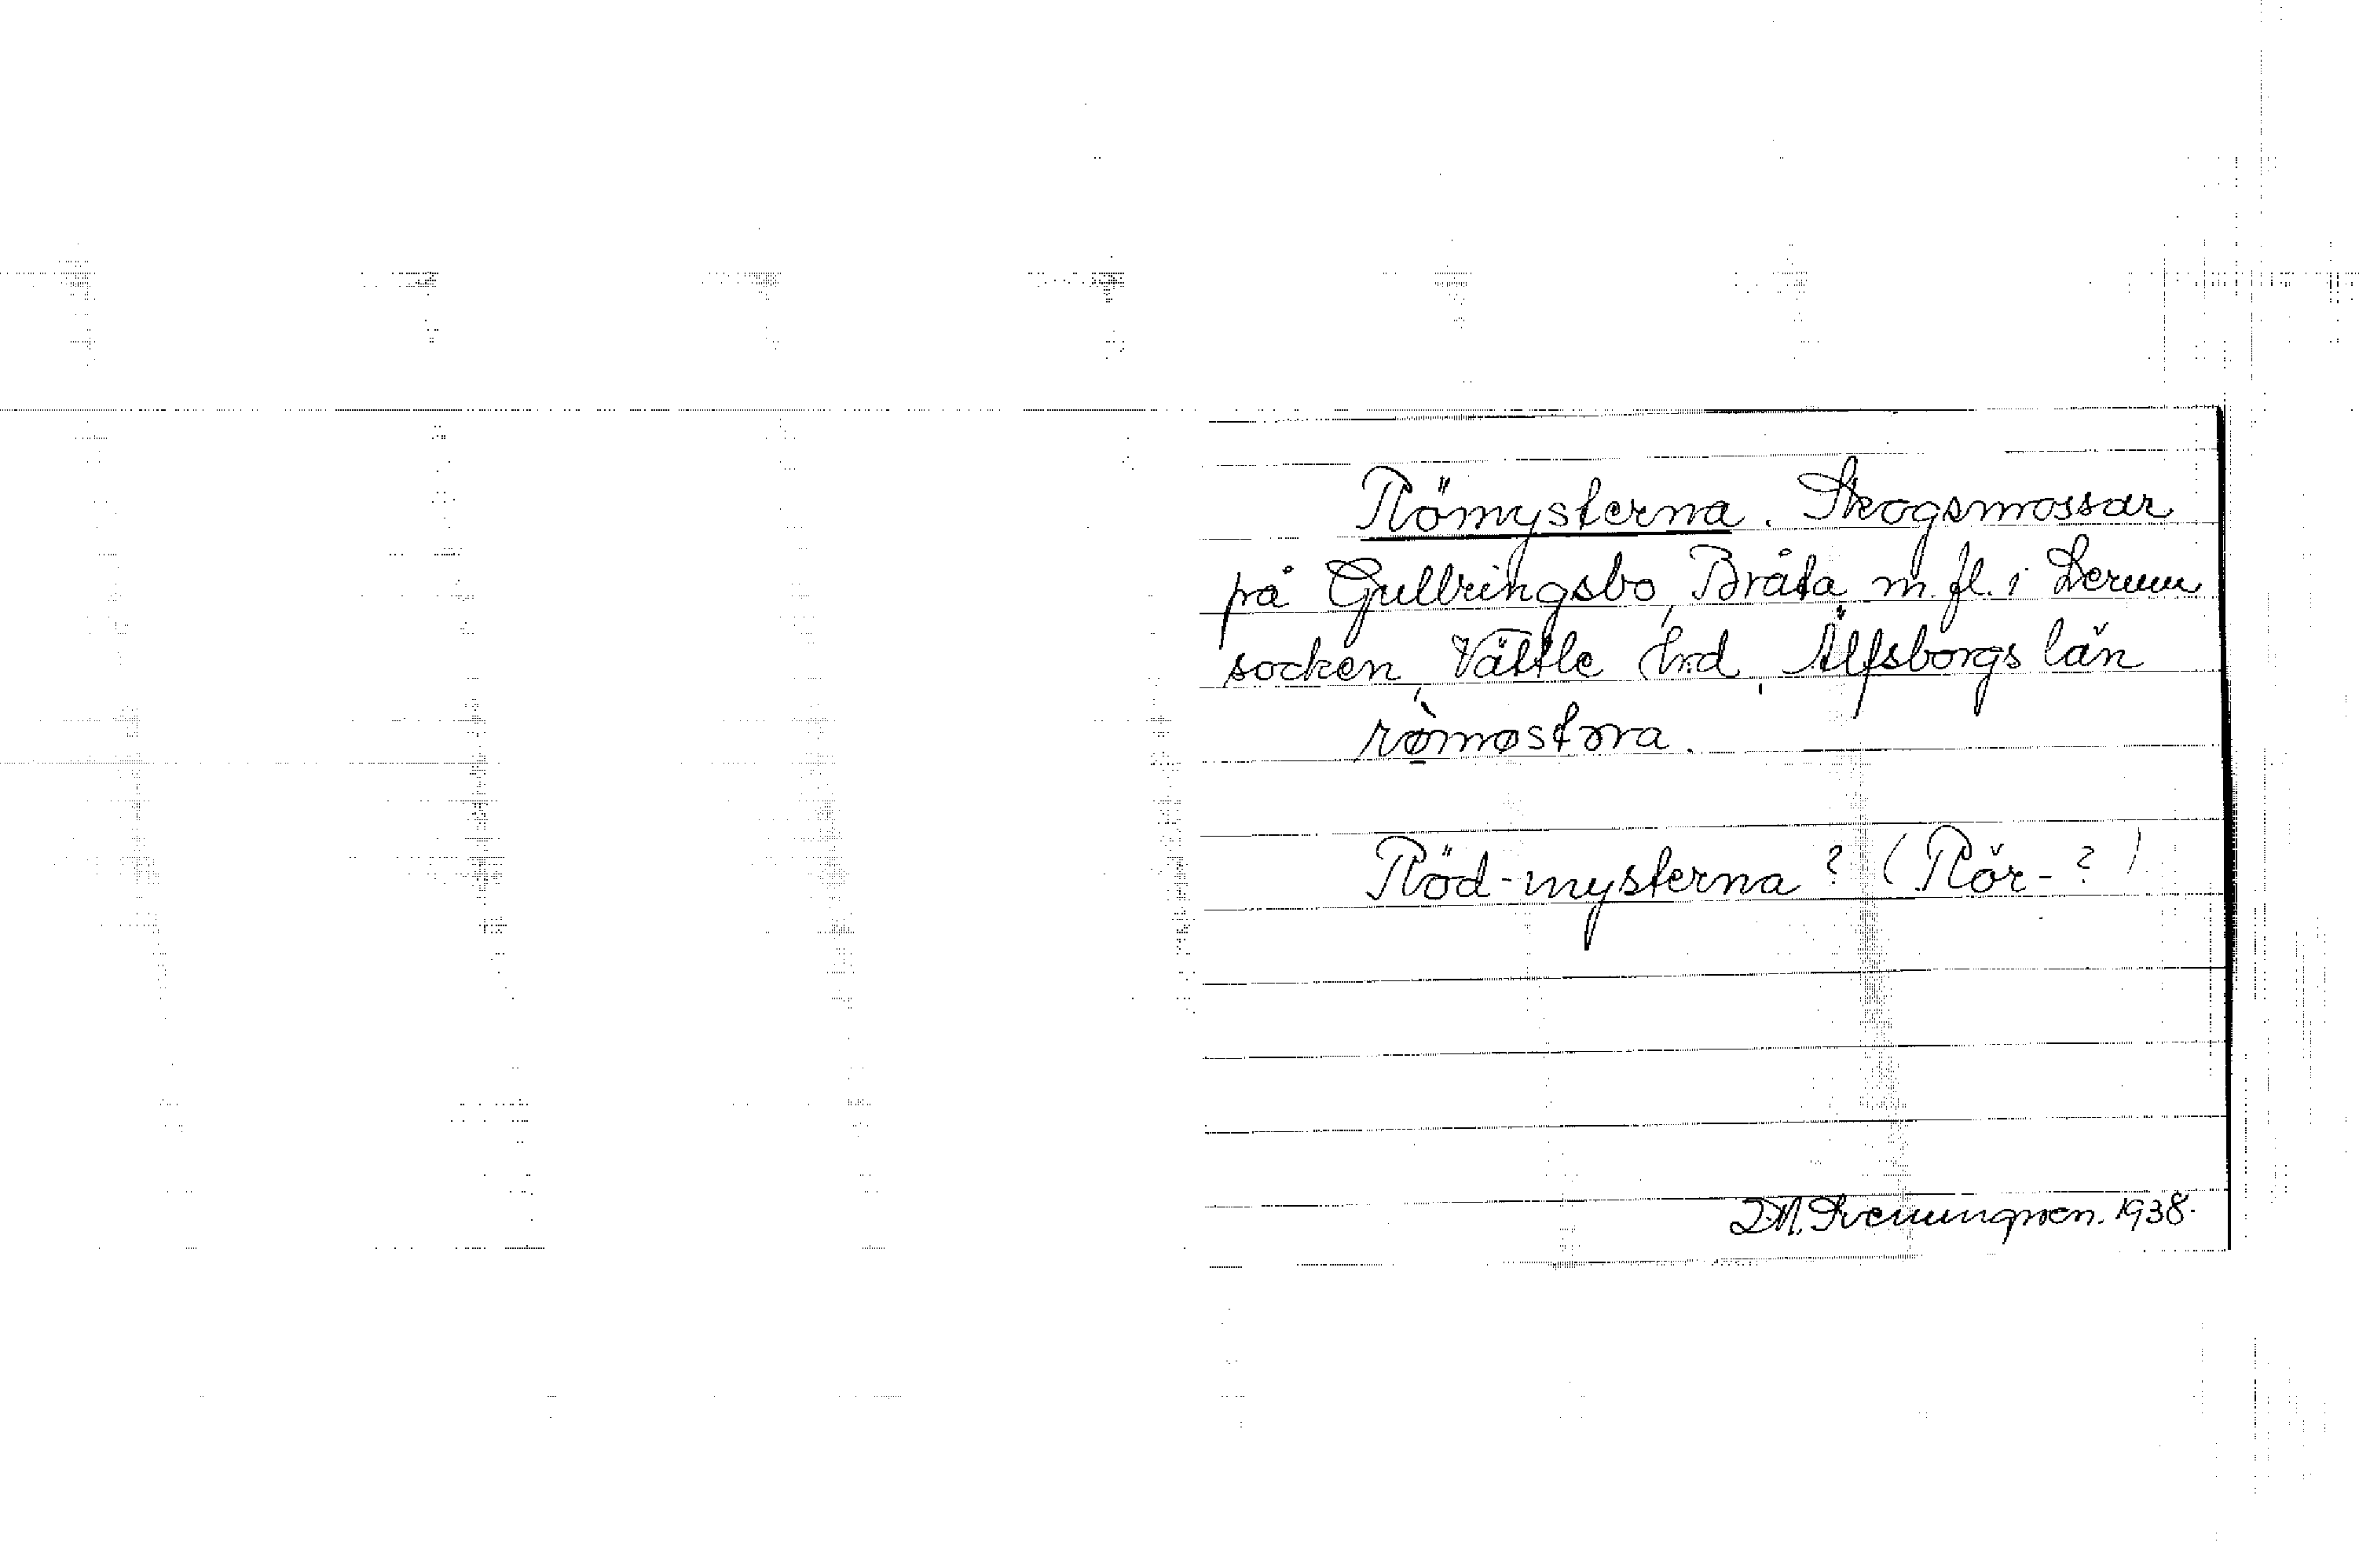 Römysterna. Skogsmossar
på Gullringsbo, Bråta m.fl. i Lerum
socken, Vättle hrd, Älfsborgs län
rø̠̀møstɘra.
Röd-mysterna? (Rör-?)
D.M. Svenungsson. 1938.